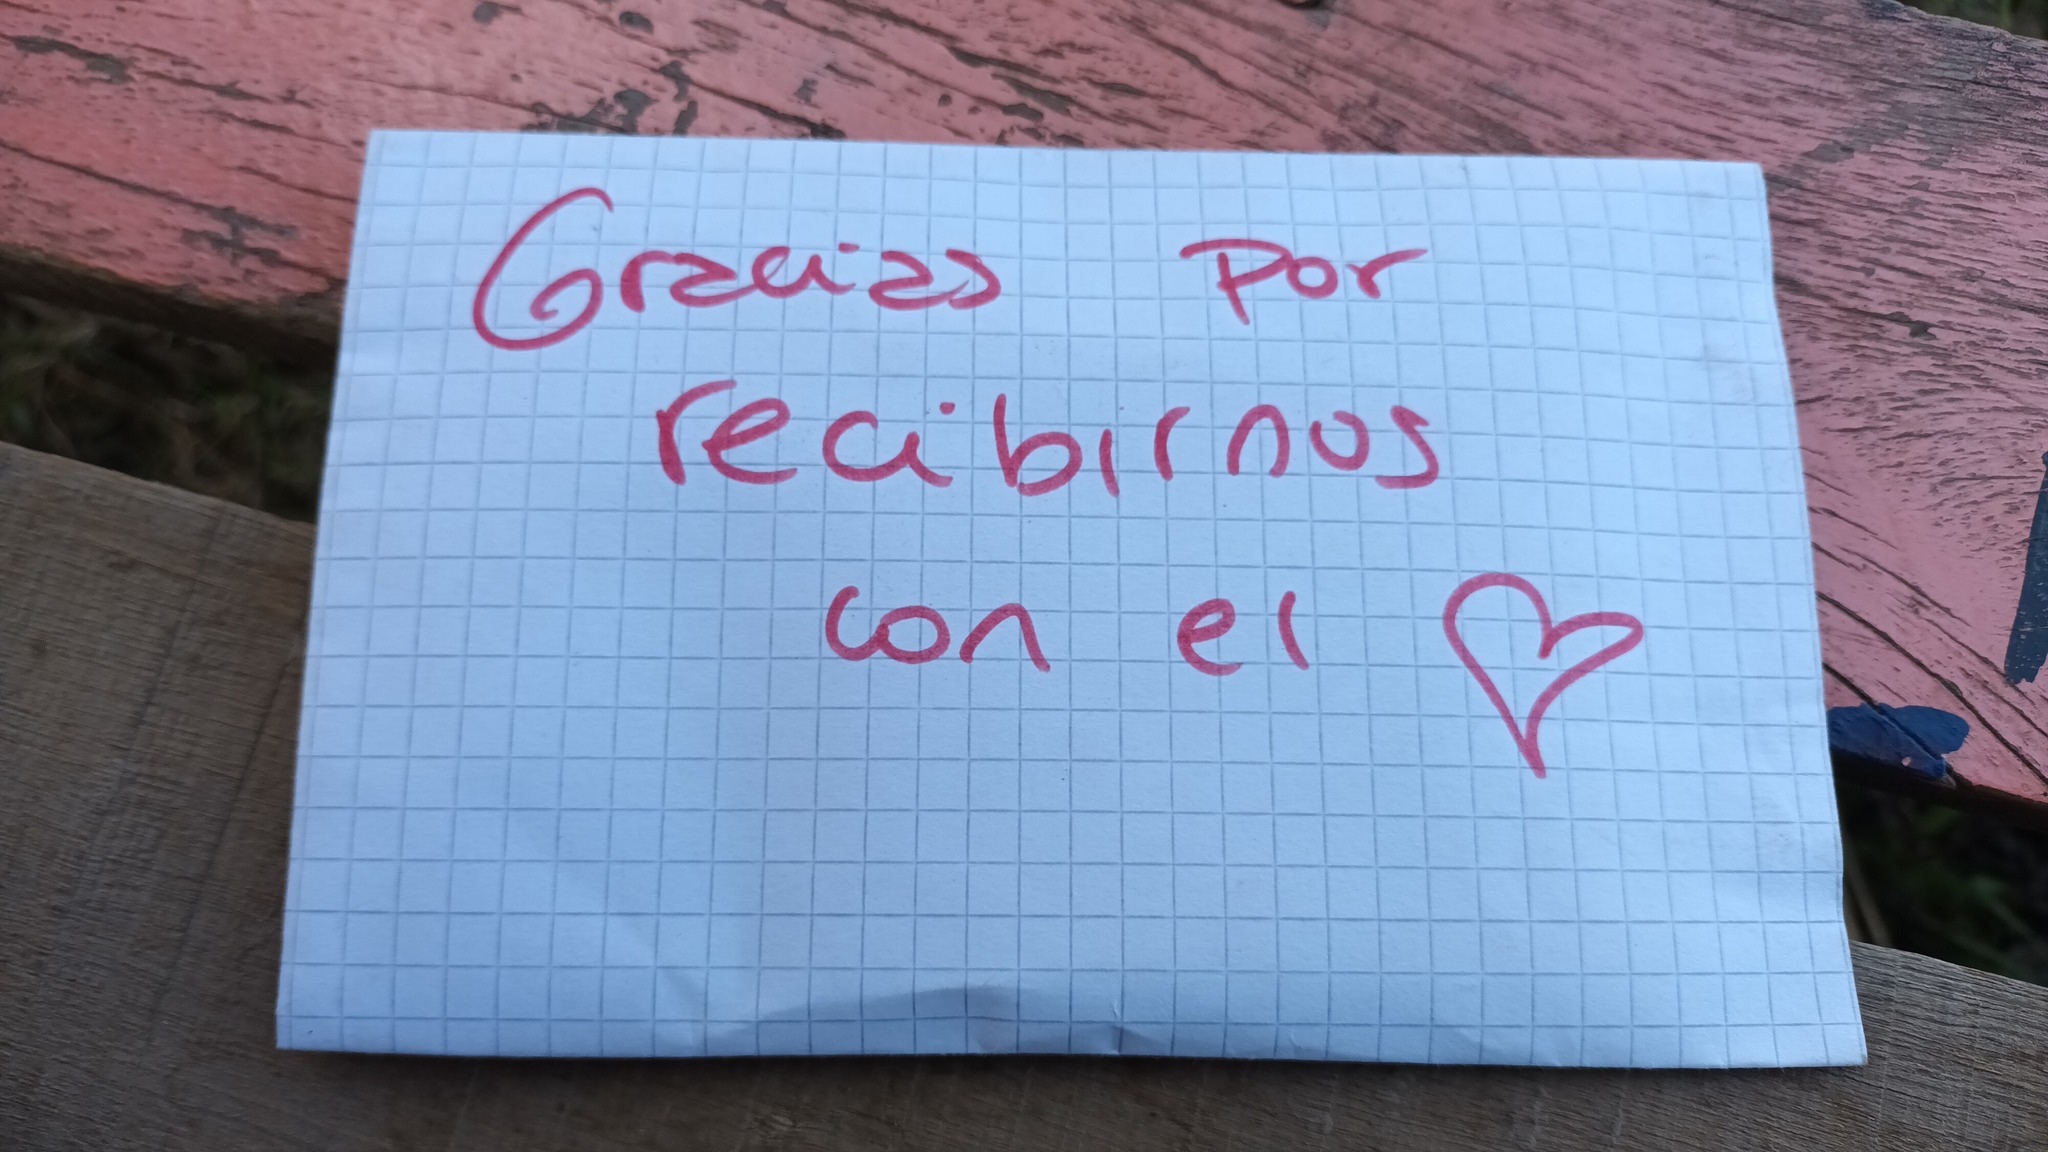 Gracias por
recibirnos
con el ♡